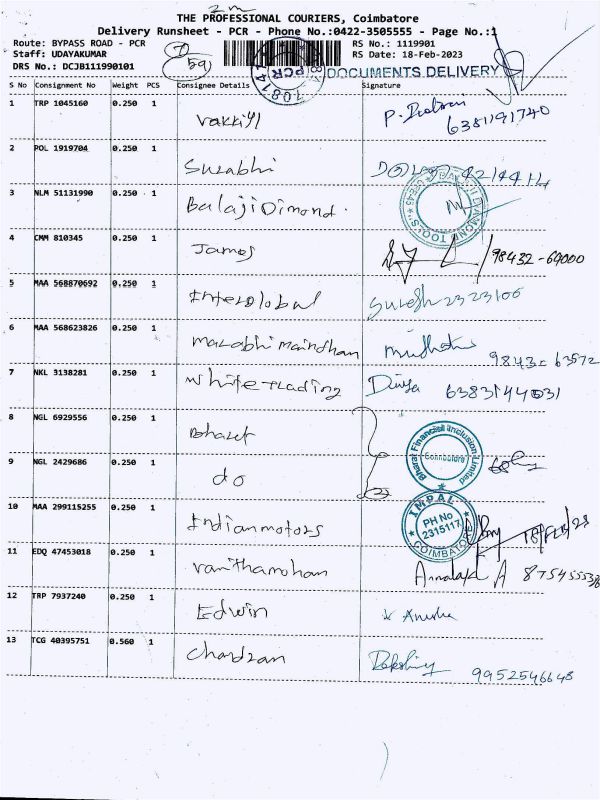 2m
THE PROFESSIONAL COURIERS, Coimbatore
Delivery Runsheet - PCR - Phone No.:0422-3505555 - Page No.:1
Route: BYPASS ROAD - PCR RS No.: 1119901
Staff: UDAYAKUMAR RS Date: 18-Feb-2023
DRS No.: DCJB111990101 59 PCR DOCUMENTS DELIVERY
S No Consignment No Weight PCS Consignee Details Signature
1 TRP 1045160 0.250 1 6381191740
2 POL 1919704 0.250 1 Surabhi
3 NLM 51131990 0.250 1 Balaji Dimond.
4 CMM 810345 0.250 1 James 98432-69000
5 MAA 568870692 0.250 1 Suresh 2323106
6 MAA 568623826 0.250 1
7 NKL 3138281 0.250 1 White Trading Divya
8 NGL 6929556 0.250 1 Bharat Bharat Financial Inclusion Limited Coimbatore
9 NGL 2429686 0.250 1 do
10 MAA 299115255 0.250 1 Indian motors IMPAL PH No 2315117 COIMBATORE
11 EDQ 47453018 0.250 1 Vanithamohan
12 TRP 7937240 0.250 1 Edwin
13 TCG 40395751 0.560 1 9952546648